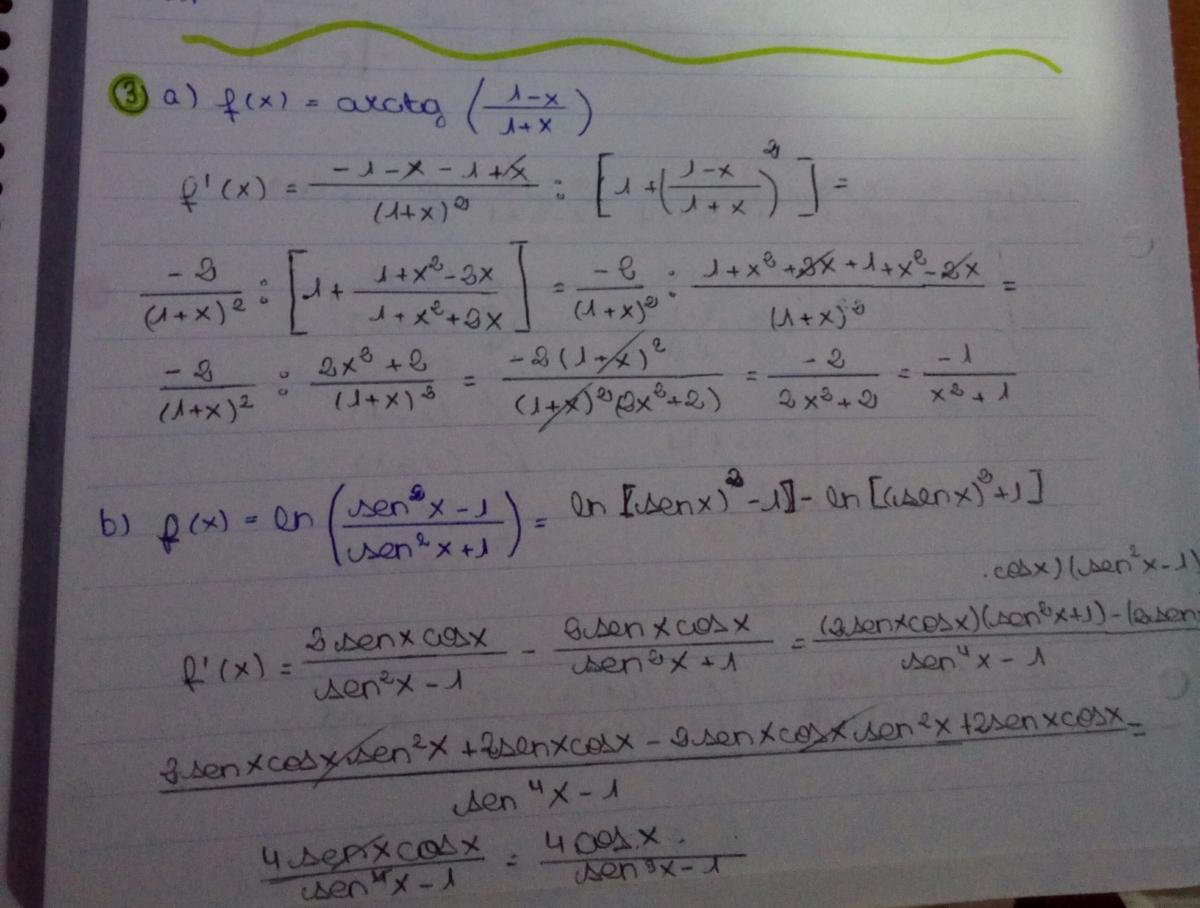 3 a) f(x) = arctg ( (1-x)/(1+x) )
f'(x) = (-1-x-1+x)/(1+x)² : [1+((1-x)/(1+x))²] =
-2/(1+x)² : [1+ (1+x²-2x)/(1+x²+2x)] = -2/(1+x)² : (1+x²+2x+1+x²-2x)/(1+x)² =
-2/(1+x)² : (2x²+2)/(1+x)² = -2(1+x)²/(1+x)²(2x²+2) = -2/(2x²+2) = -1/(x²+1)
b) f(x) = ln ( (sen²x-1)/(sen²x+1) ) = ln [(senx)²-1] - ln [(senx)²+1]
.cosx)(sen²x-1)
f'(x) = 2senxcosx/(sen²x-1) - 2senxcosx/(sen²x+1) = (2senxcosx)(sen²x+1)-(2senx/(sen⁴x-1)
(2senxcosxsen²x+2senxcosx-2senxcosxsen²x+2senxcosx)/(sen⁴x-1) =
4senxcosx/(sen⁴x-1) = 4cosx/(sen³x-1)